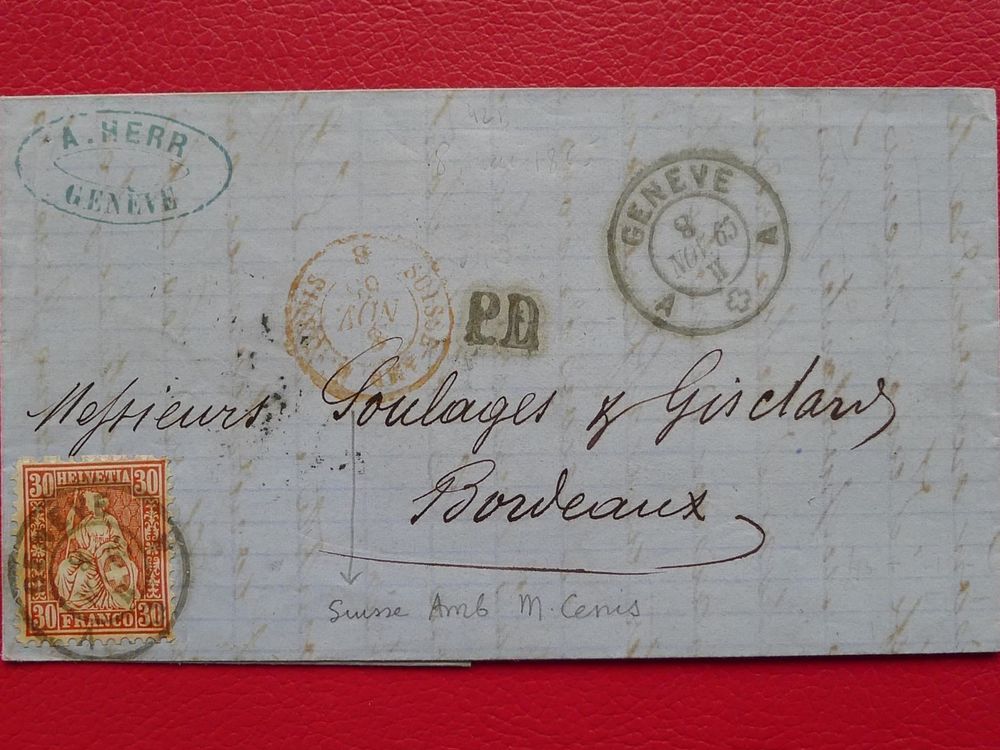 A. HERR
GENÈVE
GENEVE
8
NOV 65
A
A
SUISSE
8
NOV
65
P.D
Messieurs Soulages & Gisclard
Bordeaux
30 HELVETIA 30
30 FRANCO 30
Suisse Amb M. Cenis